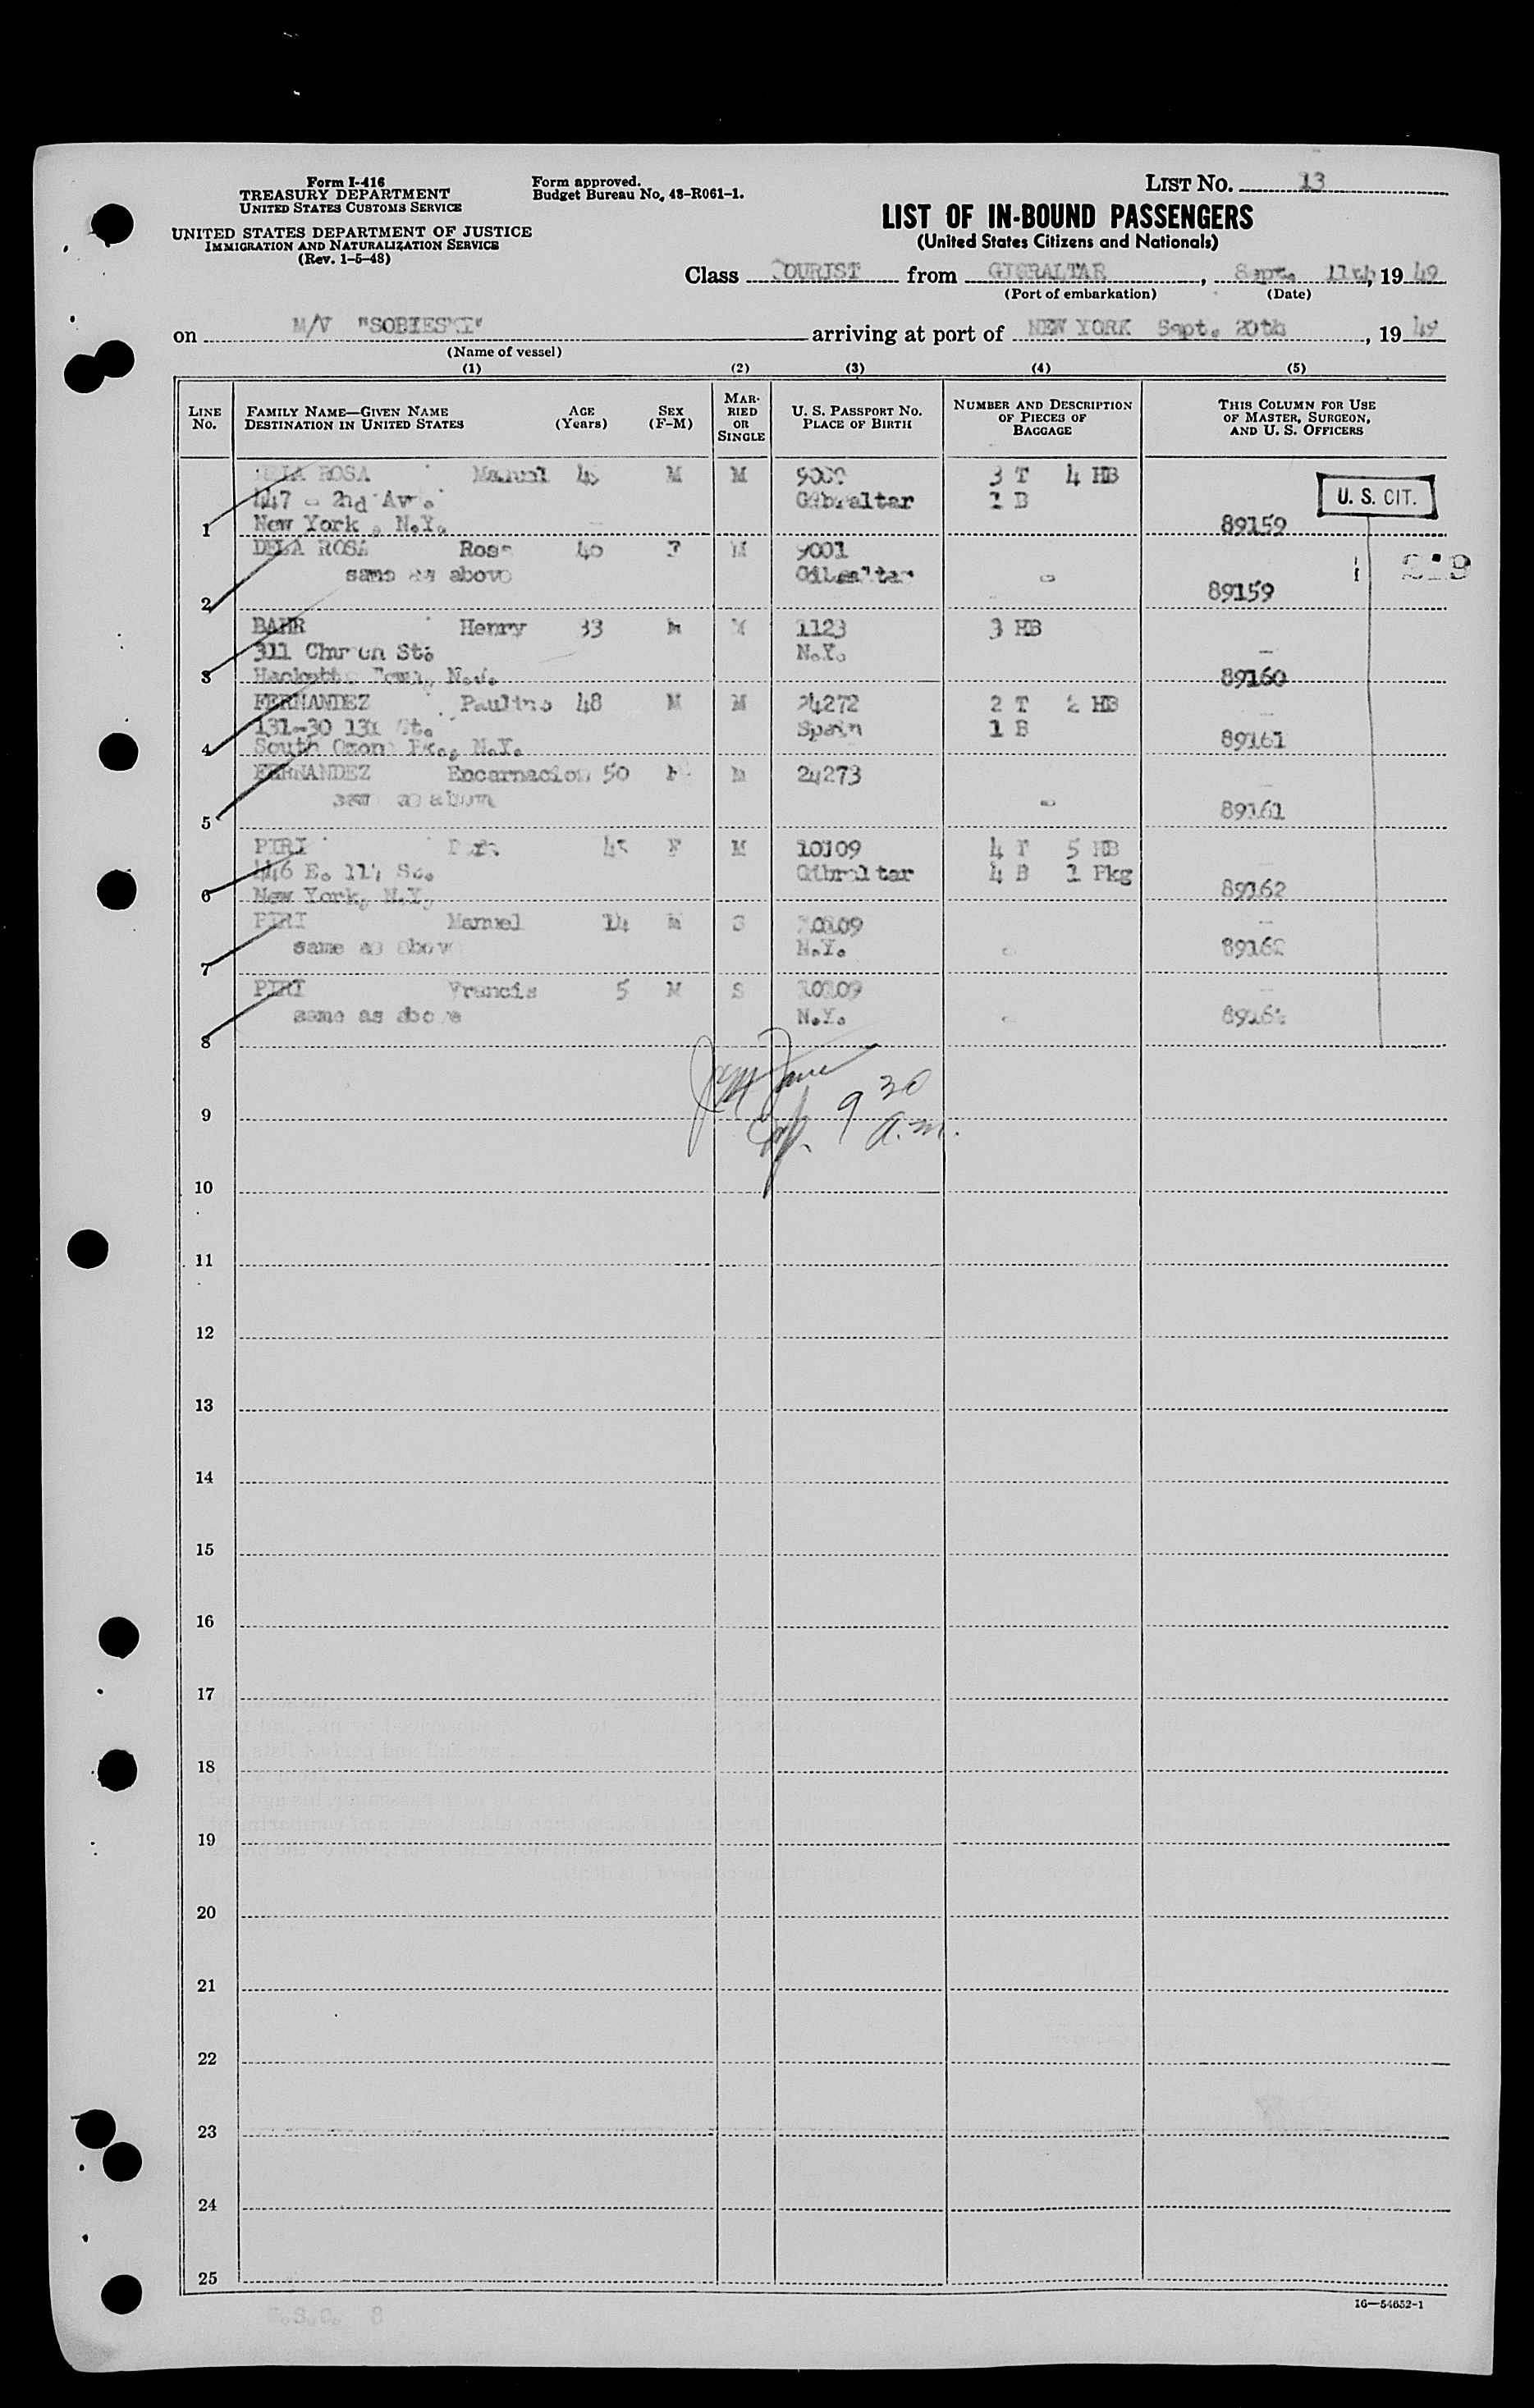 Form I-416
TREASURY DEPARTMENT
UNITED STATES CUSTOMS SERVICE
UNITED STATES DEPARTMENT OF JUSTICE
IMMIGRATION AND NATURALIZATION SERVICE
(Rev. 1-5-48)
Form approved.
Budget Bureau No. 43-R061-1.
LIST No. 13
LIST OF IN-BOUND PASSENGERS
(United States Citizens and Nationals)
Class TOURIST from GIBRALTAR, Sept. 11th, 19 49
(Port of embarkation) (Date)
on M/V "SOBIESKI" arriving at port of NEW YORK Sept. 20th, 19 49
(Name of vessel)
(1) (2) (3) (4) (5)
LINE No. FAMILY NAME—GIVEN NAME DESTINATION IN UNITED STATES AGE (Years) SEX (F-M) MARRIED OR SINGLE U. S. PASSPORT No. PLACE OF BIRTH NUMBER AND DESCRIPTION OF PIECES OF BAGGAGE THIS COLUMN FOR USE OF MASTER, SURGEON, AND U. S. OFFICERS
ROSA Manuel M M 3 T 4 HB
447 - 2nd Av. Gibraltar 1 B U. S. CIT.
1 New York, N.Y. 89159
DELA ROSA Rosa F M 9001
same as above Gibraltar -
2 89159
BAHR Henry 33 M M 1123 3 HB
311 Church St. N.Y. -
3 N.J. 89160
FERNANDEZ Paulino 48 M M 24272 2 T 2 HB
131-30 131 St. Spain 1 B
4 South Ozone Pk., N.Y. 89161
FERNANDEZ Encarnacion 50 F M 24273
same as above -
5 89161
PIRI F M 10109 4 T 5 HB
446 E. 117 St. Gibraltar 4 B 1 Pkg
6 New York, N.Y. 89162
PIRI Manuel 14 M S 10109
same as above N.Y. -
7 89162
PIRI Francis 5 M S 10109
same as above N.Y. -
8 89162
9 30
9 a.m.
10
11
12
13
14
15
16
17
18
19
20
21
22
23
24
25
16—54652-1
U.S.C. 8